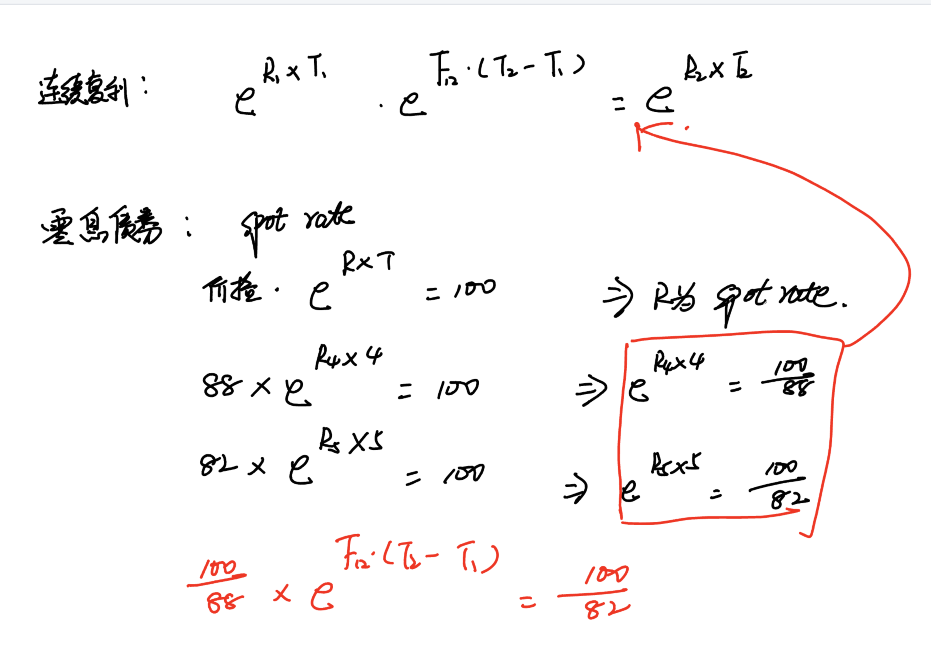 连续复利: e^{R₁×T₁} · e^{F₁₂·(T₂-T₁)} = e^{R₂×T₂}
零息债券: spot rate
价格· e^{R×T} = 100 ⇒ R为 spot rate.
88 × e^{R₄×4} = 100 ⇒ e^{R₄×4} = 100/88
82 × e^{R₅×5} = 100 ⇒ e^{R₅×5} = 100/82
100/88 × e^{F₁₂·(T₂-T₁)} = 100/82